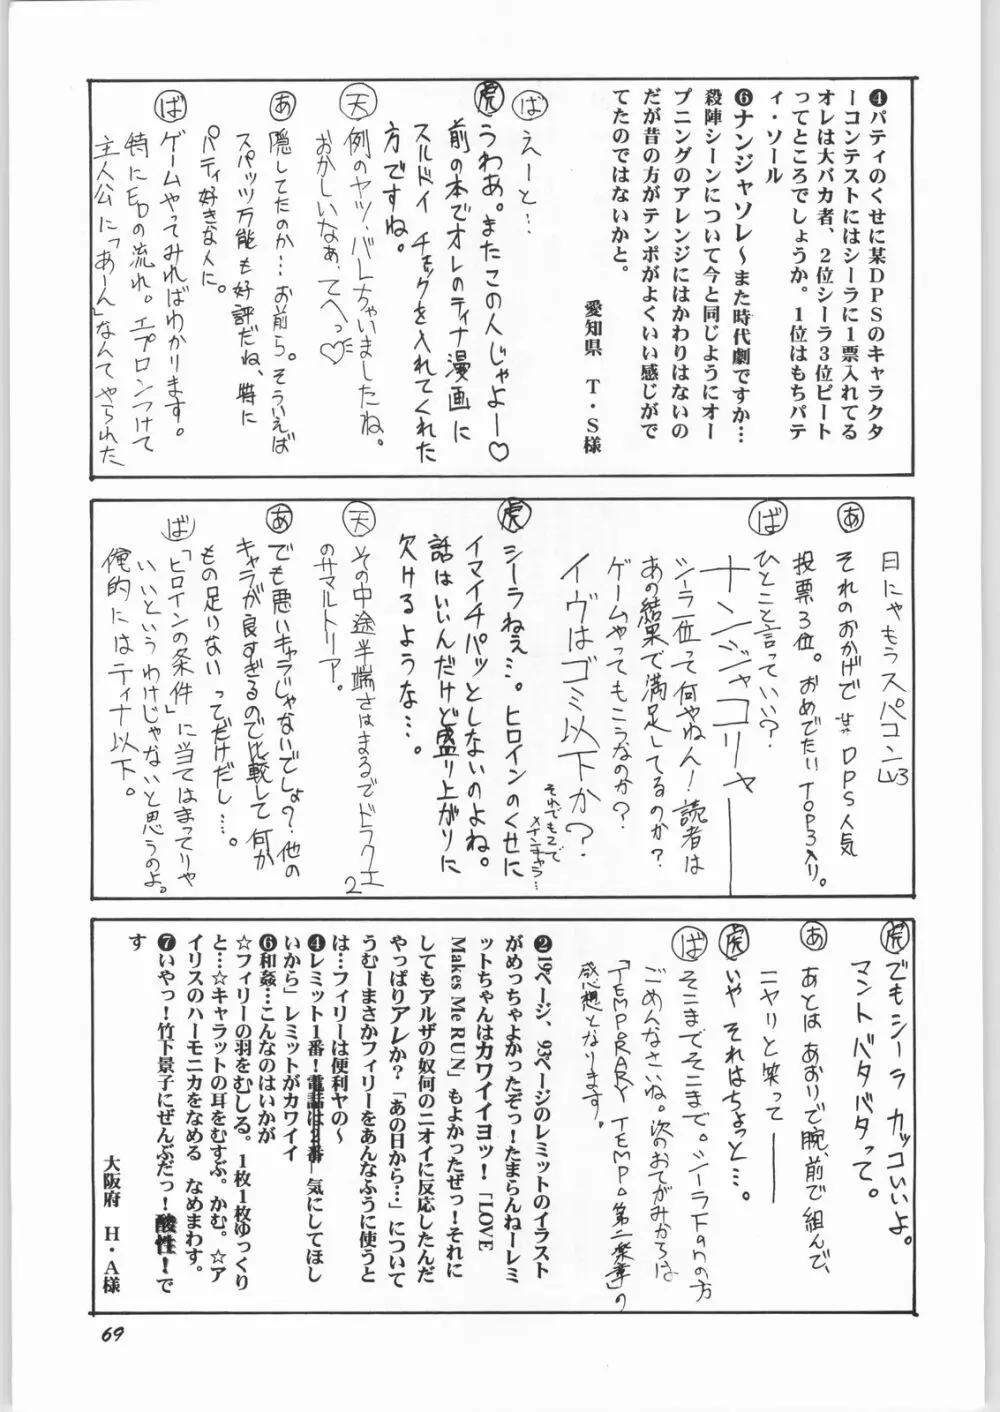 ❹パティのくせに某DPSのキャラクタ
ーコンテストにはシーラに1票入れてる
オレは大バカ者、2位シーラ3位ピート
ってところでしょうか。1位はもちパテ
ィ・ソール
❻ナンジャソレ～また時代劇ですか…
殺陣シーンについて今と同じようにオー
プニングのアレンジにはかわりはないの
だが昔の方がテンポがよくいい感じがで
てたのではないかと。
愛知県 T・S様
ば えーと…
虎 うわあ。またこの人じゃよー♡
前の本でオレのティナ漫画に
スルドイ チェックを入れてくれた
方ですね。
天 例のヤツ、バレちゃいましたね。
おかしいなぁ、てへっ♡
あ 隠してたのか…お前ら。そういえば
スパッツ万能も好評だね、特に
パティ好きな人に。
ば ゲームやってみればわかります。
特にEDの流れ。エプロンつけて
主人公に「あーん」なんてやられた
日にゃもうスパコンLV3
あ それのおかげで某DPS人気
投票3位。おめでたいTOP3入り。
ば ひとこと言っていい?
ナンジャコリャ――
シーラ一位って何やねん!読者は
あの結果で満足してるのか?
ゲームやってもこうなのか?
イヴはゴミ以下か?
それでもって
メインキャラ…
虎 シーラねぇ…。ヒロインのくせに
イマイチパッとしないのよね。
話はいいんだけど盛り上がりに
欠けるような…。
天 その中途半端さはまるでドラクエ2
のサマルトリア。
あ でも悪いキャラじゃないでしょ?他の
キャラが良すぎるので比較して何か
もの足りないってだけだし…。
ば 「ヒロインの条件」に当てはまってりゃ
いいというわけじゃないと思うのよ。
俺的にはティナ以下。
虎 でもシーラ カッコいいよ。
マントバタバタって。
あ あとは あおりで腕、前で組んで、
ニヤリと笑って――
虎 いや それはちょっと…。
ば そこまでそこまで。シーラFanの方
ごめんなさいね。次のおてがみからは
「TEMPORARY TEMPO第二楽章」の
感想となります。
❷19ページ、93ページのレミットのイラスト
がめっちゃよかったぞっ!たまらんねーレミ
ットちゃんはカワイイヨッ!「LOVE
Makes Me RUN」もよかったぜっ!それに
してもアルザの奴何のニオイに反応したんだ
やっぱりアレか?「あの日から…」について
うむーまさかフィリーをあんなふうに使うと
は…フィリーは便利ヤの～
❹レミット1番!電話は2番―気にしてほし
いから」レミットがカワイイ
❻和姦…こんなのはいかが
☆フィリーの羽をむしる。1枚1枚ゆっくり
と…☆キャラットの耳をむすぶ。かむ。☆ア
イリスのハーモニカをなめる なめまわす。
❼いやっ!竹下景子にぜんぶだっ!酸性!で
す
大阪府 H・A様
69